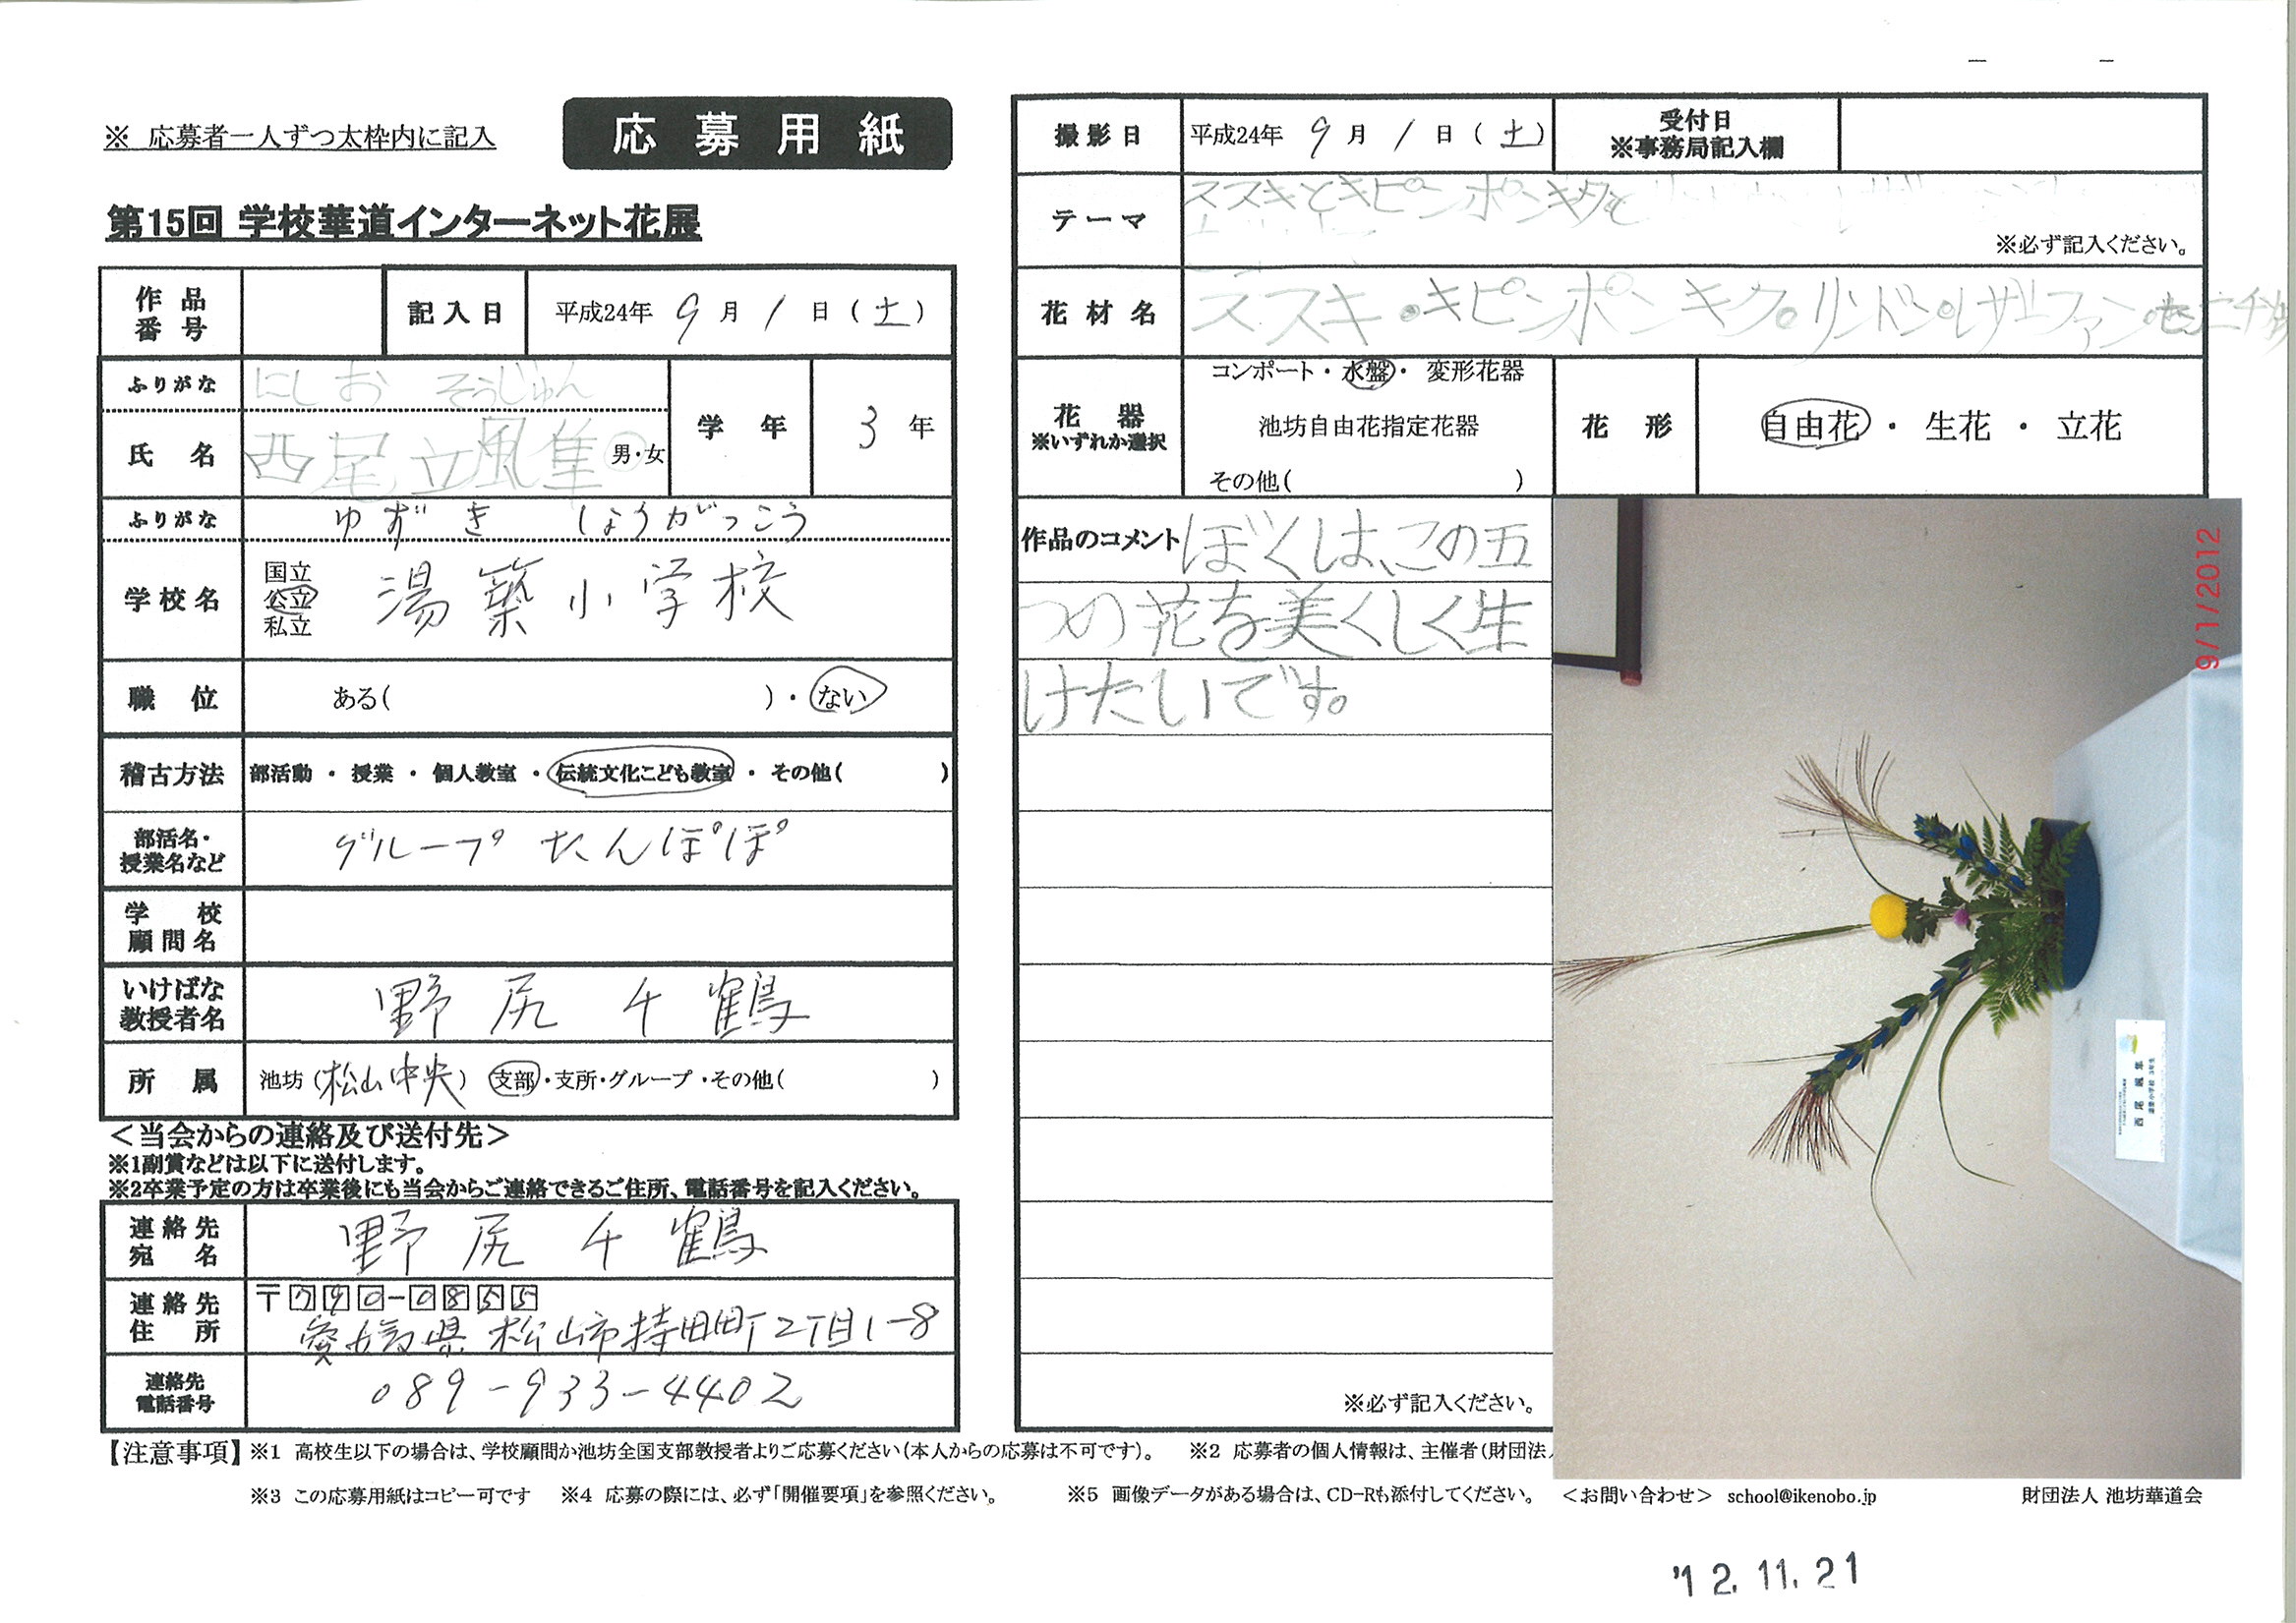 ※ 応募者一人ずつ太枠内に記入
応募用紙
第15回 学校華道インターネット花展
作品番号
記入日 平成24年 9月 1日 (土)
ふりがな にしお そうじゅん
氏名 西尾 颯隼 男・女
学年 3年
ふりがな ゆずき しょうがっこう
学校名 国立 公立 私立 湯築小学校
職位 ある( )・ない
稽古方法 部活動 ・ 授業 ・ 個人教室 ・ 伝統文化こども教室 ・ その他( )
部活名・授業名など グループ たんぽぽ
学校顧問名
いけばな教授者名 野尻 千鶴
所属 池坊 (松山中央) 支部・支所・グループ・その他( )
<当会からの連絡及び送付先>
※1副賞などは以下に送付します。
※2卒業予定の方は卒業後にも当会からご連絡できるご住所、電話番号を記入ください。
連絡先宛名 野尻 千鶴
連絡先住所 〒790-0855
愛媛県松山市持田町2丁目1-8
連絡先電話番号 089-933-4402
撮影日 平成24年 9月 1日 (土)
受付日
※事務局記入欄
テーマ ススキとキピンポンキクと
※必ず記入ください。
花材名 ススキ・キピンポンキク。リンドン。レザーファン・
花器
※いずれか選択
コンポート・水盤・変形花器
池坊自由花指定花器
その他( )
花形 自由花 ・ 生花 ・ 立花
作品のコメント ぼくは、この五
つの花を美くしく生
けたいです。
※必ず記入ください。
9/1/2012
西尾 颯隼
【注意事項】 ※1 高校生以下の場合は、学校顧問か池坊全国支部教授者よりご応募ください(本人からの応募は不可です)。 ※2 応募者の個人情報は、主催者(財団法
※3 この応募用紙はコピー可です ※4 応募の際には、必ず「開催要項」を参照ください。 ※5 画像データがある場合は、CD-Rも添付してください。 <お問い合わせ> school@ikenobo.jp 財団法人 池坊華道会
'12.11.21